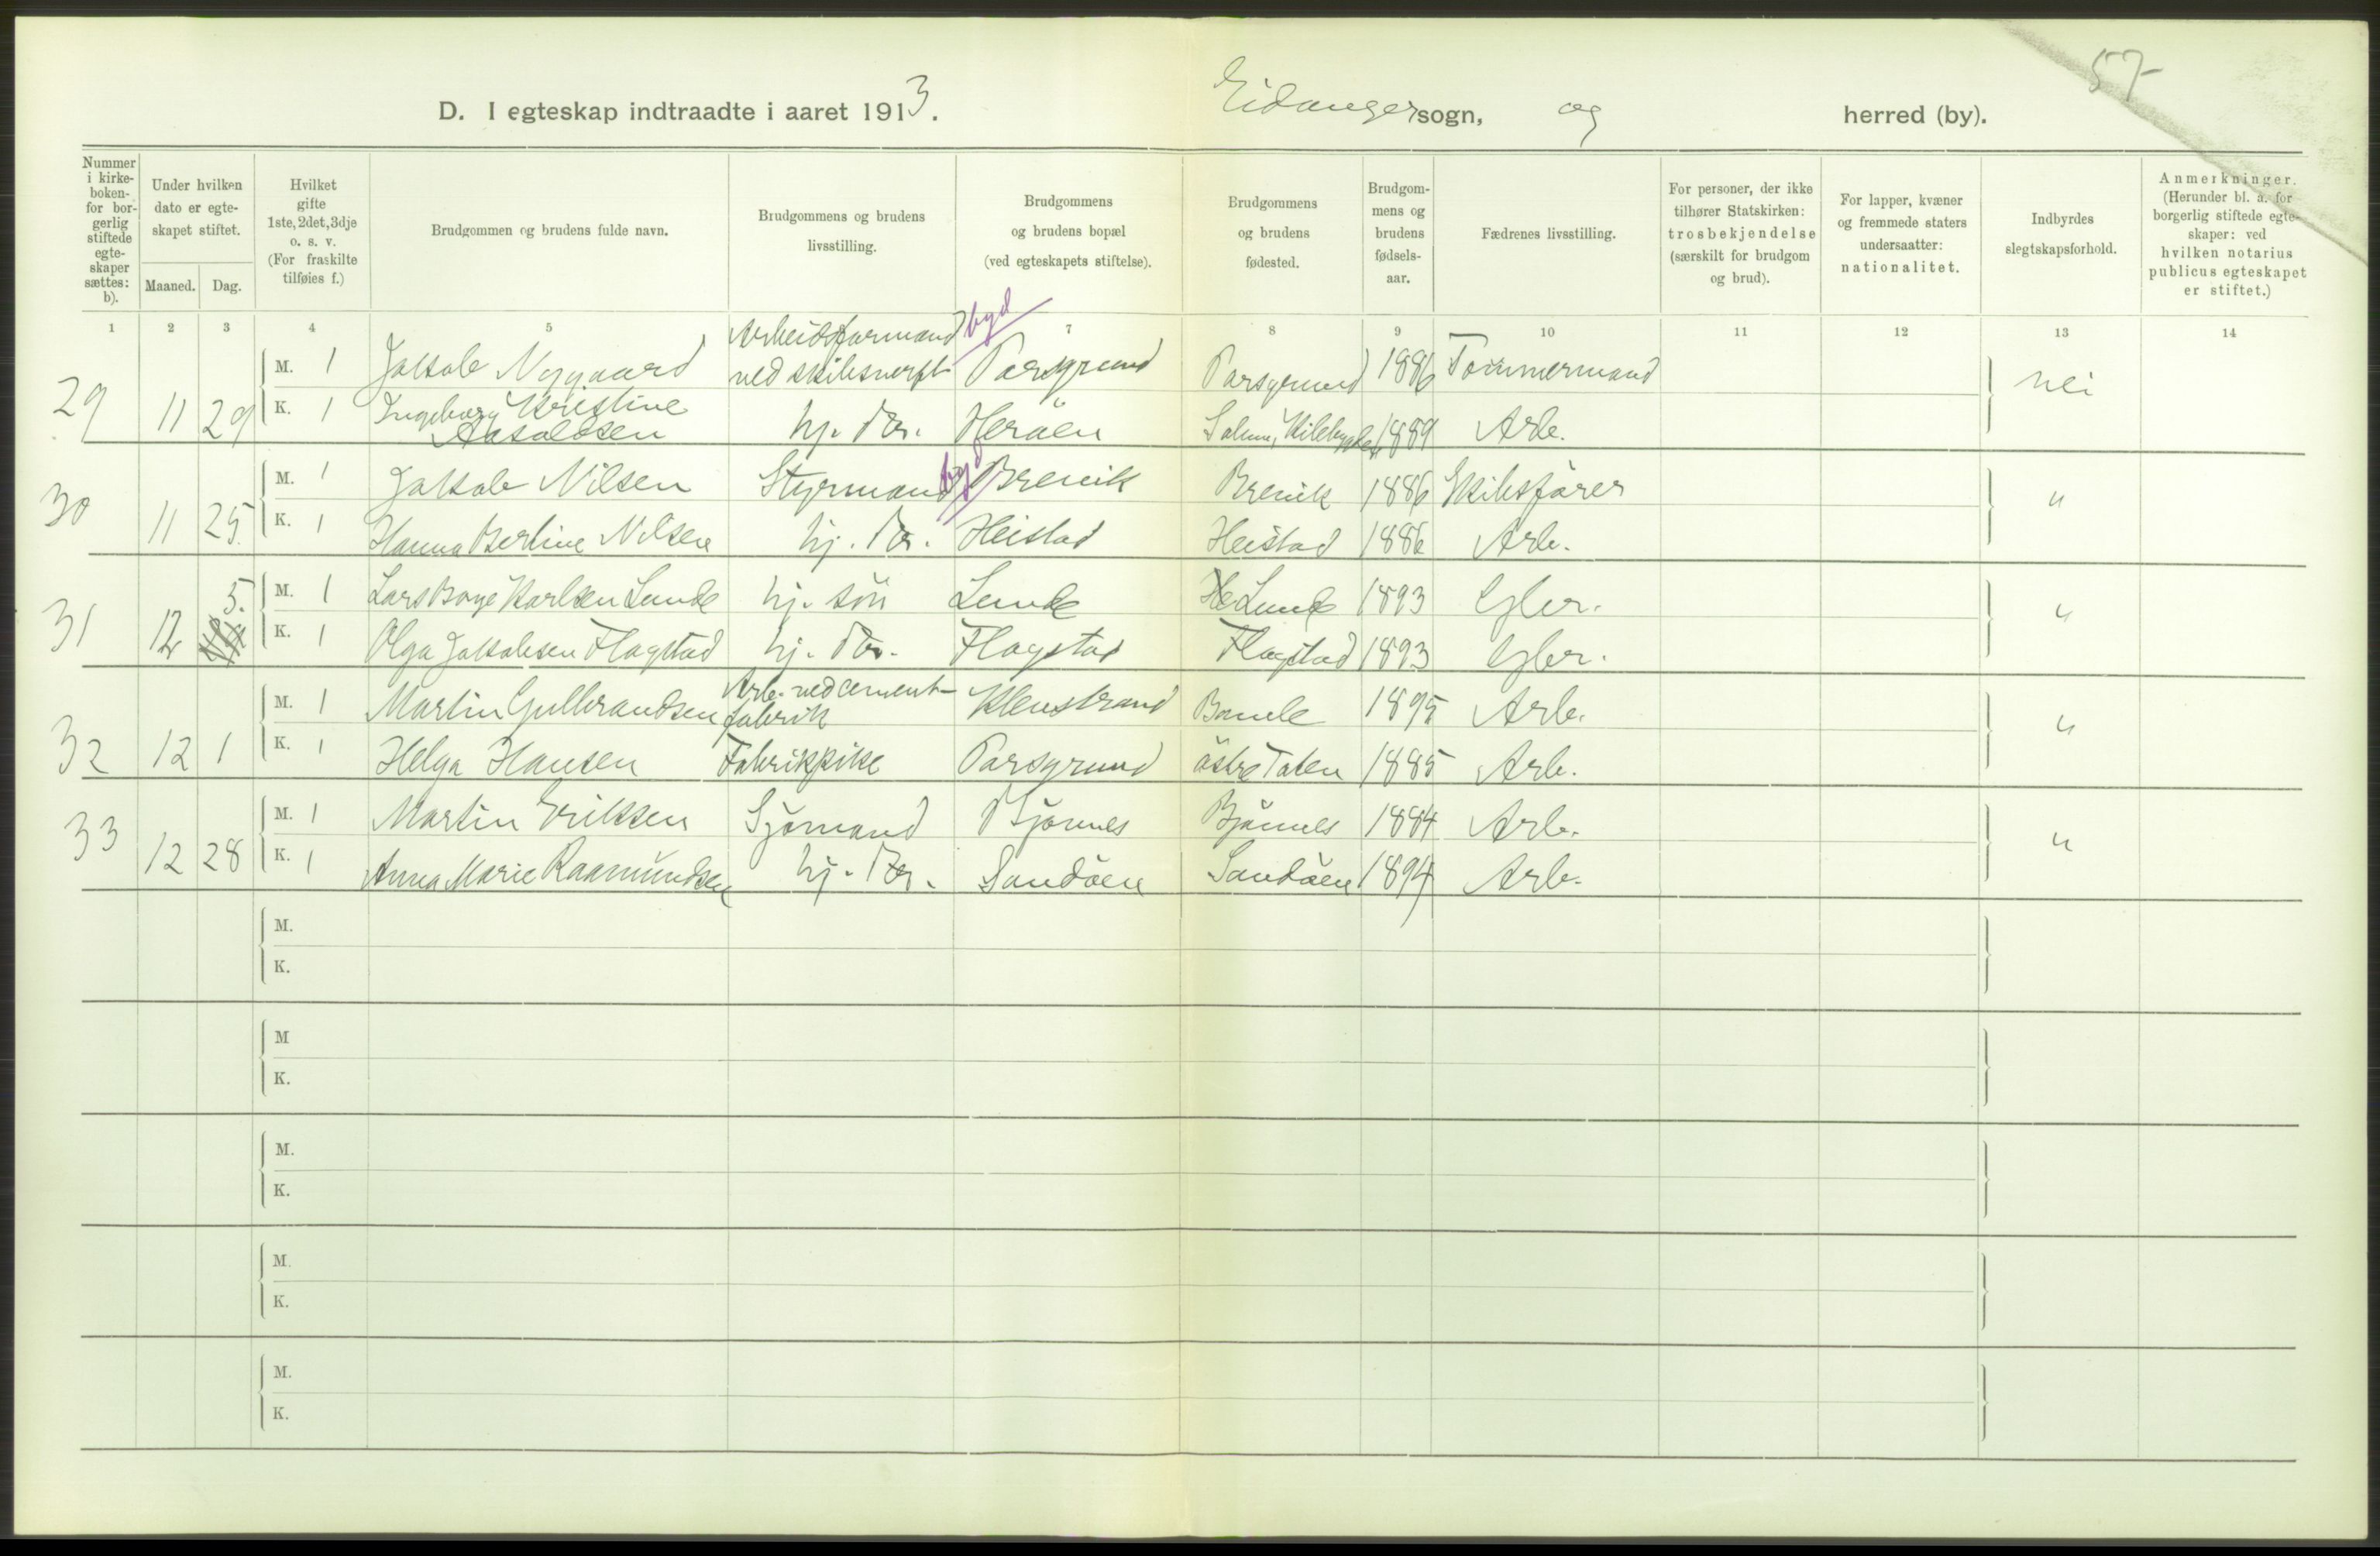 57
D. I egteskap indtraadte i aaret 1913. Eidanger sogn, og herred (by).
Nummer i kirkeboken- for borgerlig stiftede egteskaper sættes: b).
Under hvilken dato er egteskapet stiftet.
Maaned. Dag.
Hvilket gifte 1ste, 2det, 3dje o. s. v. (For fraskilte tilføies f.)
Brudgommen og brudens fulde navn.
Brudgommens og brudens livsstilling.
Brudgommens og brudens bopæl (ved egteskapets stiftelse).
Brudgommens og brudens fødested.
Brudgommens og brudens fødsels-aar.
Fædrenes livsstilling.
For personer, der ikke tilhører Statskirken: trosbekjendelse (særskilt for brudgom og brud).
For lapper, kvæner og fremmede staters undersaatter: nationalitet.
Indbyrdes slegtskapsforhold.
Anmerkninger. (Herunder bl. a. for borgerlig stiftede egteskaper: ved hvilken notarius publicus egteskapet er stiftet.)
1 2 3 4 5 7 8 9 10 11 12 13 14
29 11 29 M. 1 Jakob Nygaard Arbeidsformand ved skibsverft byd Porsgrund Porsgrund 1886 Tømmermand nei
K. 1 Ingeborg Kristine Aasoldsen hj. dtr. Heröen Solum, Kilebygden 1889 Arb.
30 11 25. M. 1 Jakob Nilsen Styrmand byd Brevik Brevik 1886 Skibsfører "
K. 1 Hanna Bertine Nilsen hj. dtr. Heistad Heistad 1886 Arb.
31 12 5. M. 1 Lars Boye Karlsen Lunde hj. sön Lunde Lunde 1893 Gbr. "
K. 1 Olga Jakobsen Flagstad hj. dtr. Flagstad Flagstad 1893 Gbr.
32 12 1 M. 1 Martin Gulbrandsen Arb. ved cementfabrik Klevstrand Bamle 1895 Arb. "
K. 1 Helga Hansen Fabrikpike Porsgrund östre Toten 1885 Arb.
33 12 28 M. 1 Martin Eriksen Sjömand Bjönnes Bjönnes 1884 Arb. "
K. 1 Anna Marie Raamundsen hj. dtr. Sandöen Sandöen 1894 Arb.
M.
K.
M
K.
M.
K.
M.
K.
M.
K.